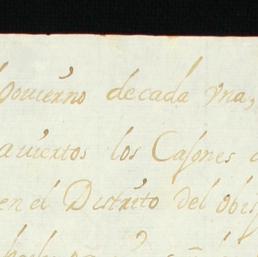 Govierno de cada vna,
aviertos los Cajones
en el Distrito del Obis